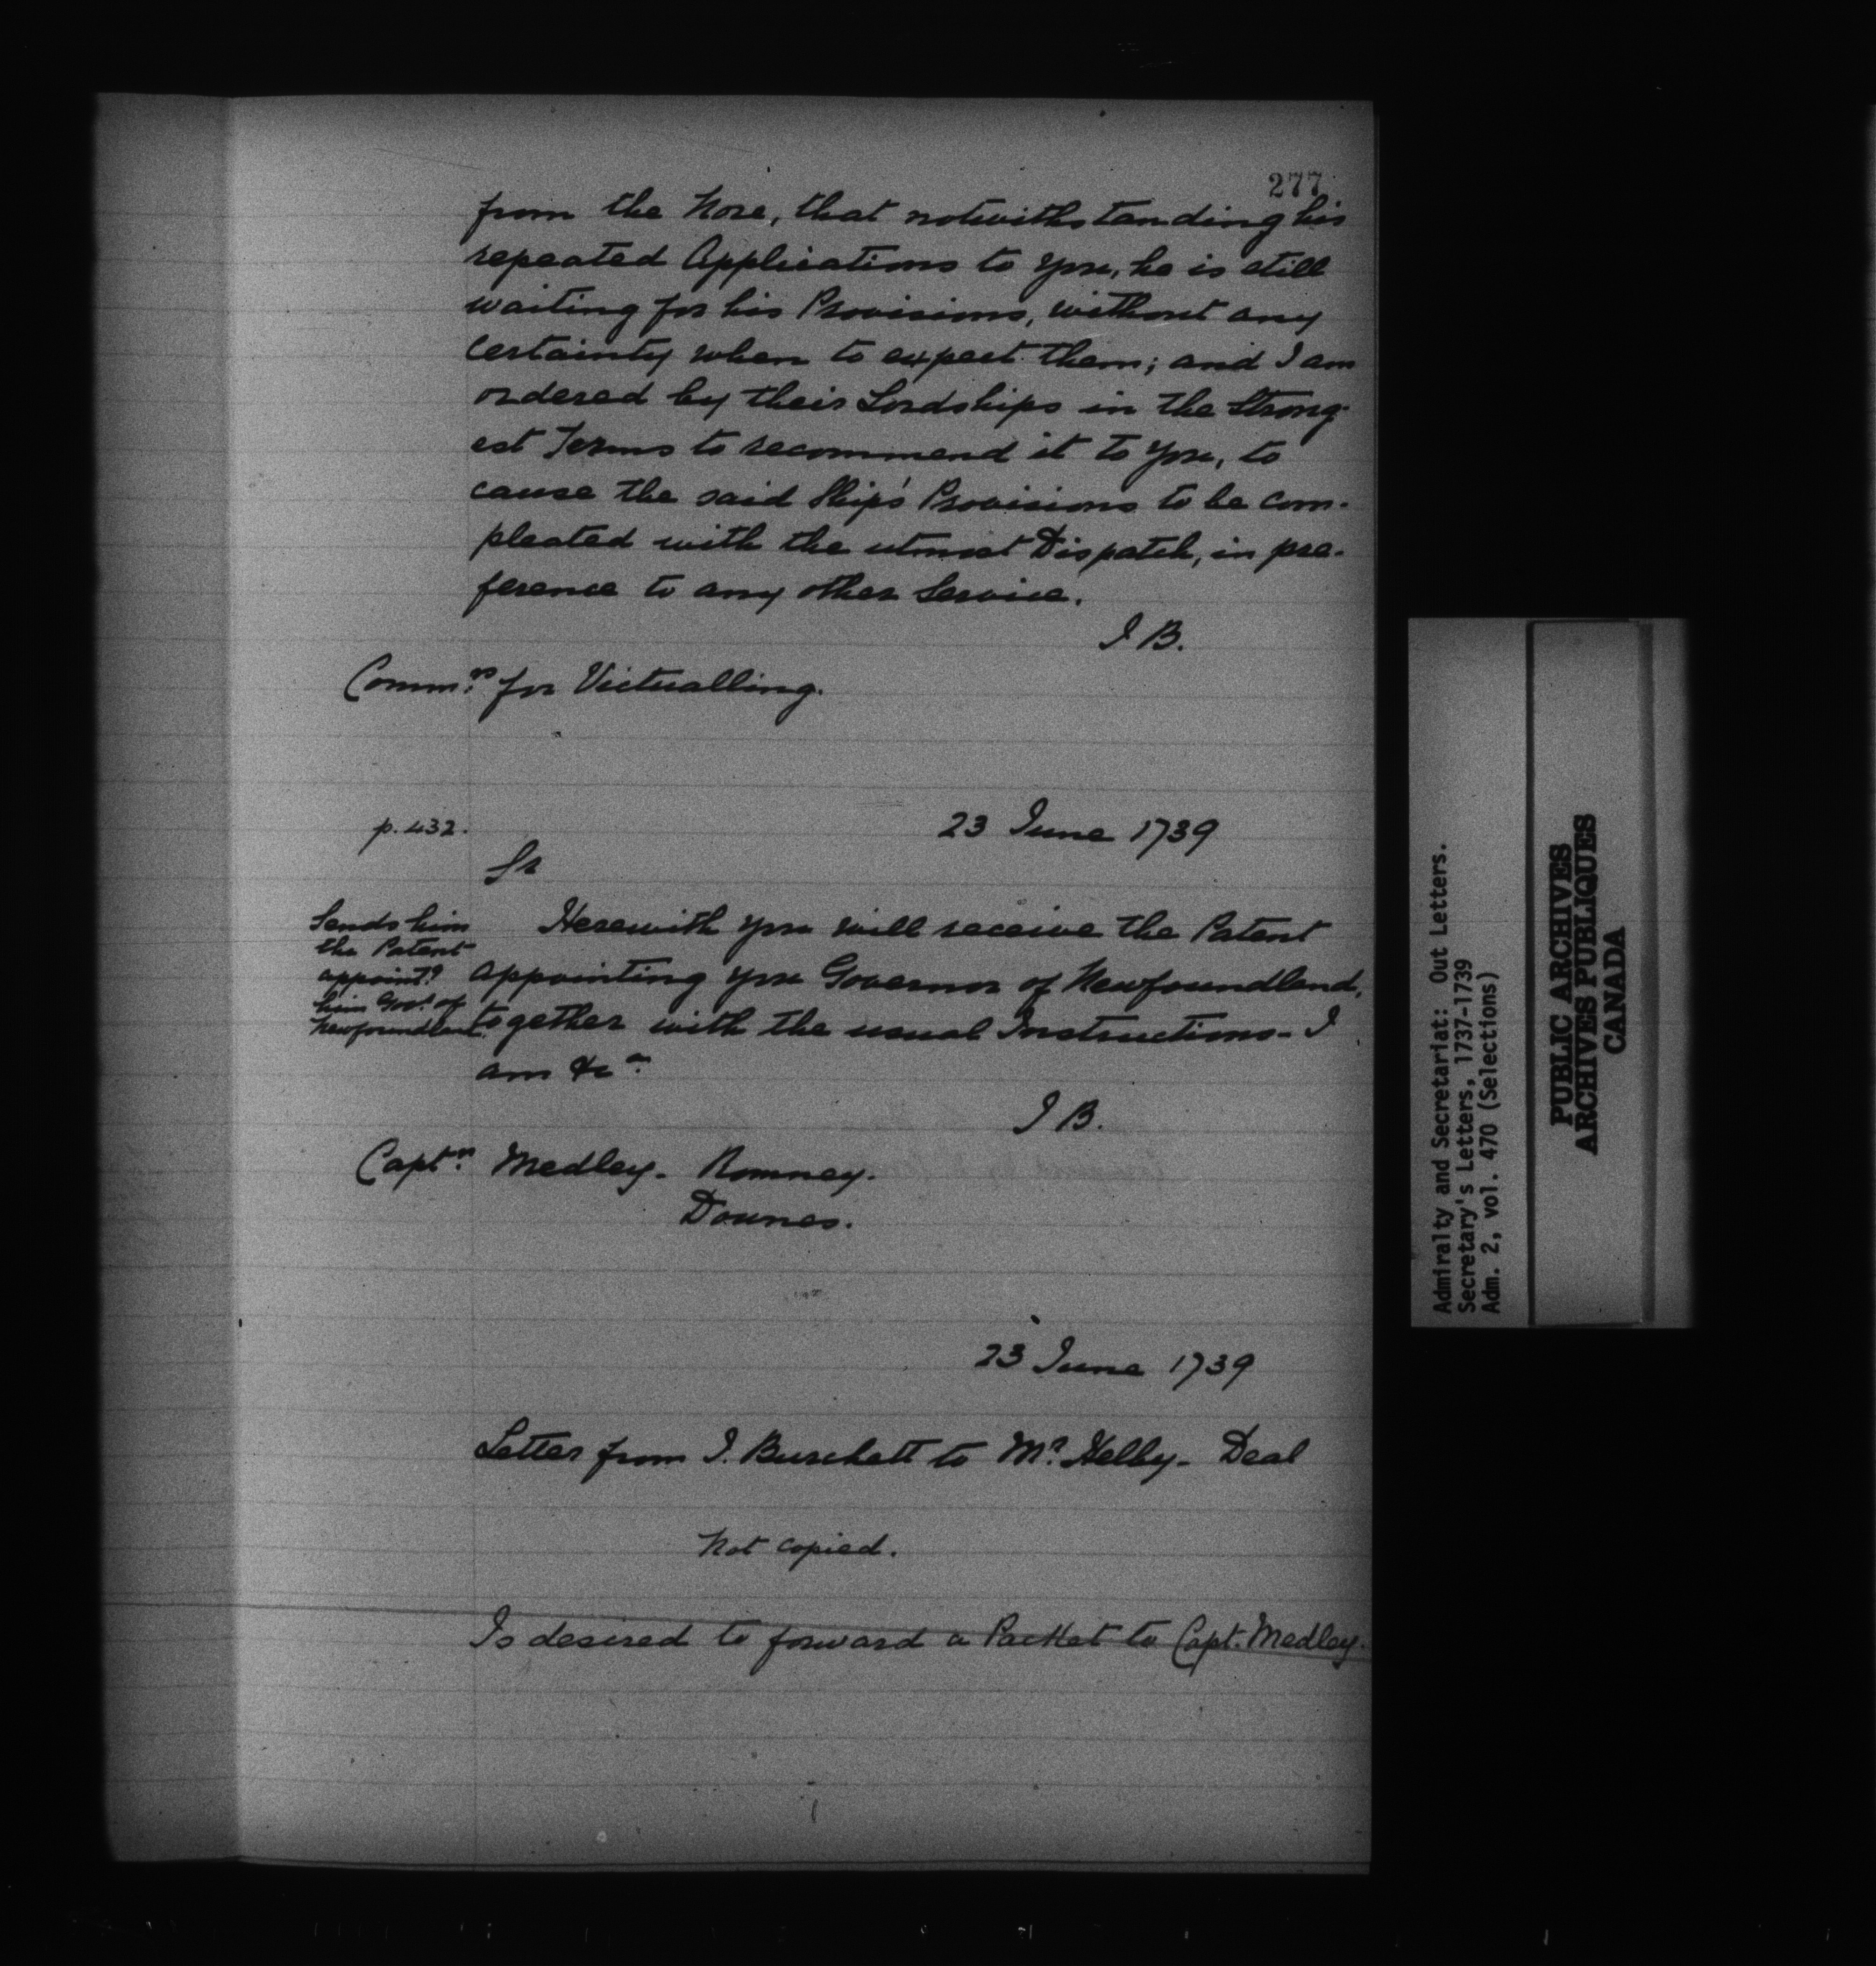 277
from the Nore, that notwithstanding his
repeated Applications to You, he is still
waiting for his Provisions, without any
certainty when to expect them; and I am
ordered by their Lordships in the Strong-
est Terms to recommend it to You, to
cause the said Ship's Provisions to be com-
pleated with the utmost Dispatch, in pre-
ference to any other Service.
I B.
Commrs for Victualling.
p. 432.
23 June 1739
Sr
Sends him
the Patent
appointg
him Govr of
Newfoundland.
Herewith you will receive the Patent
appointing you Governor of Newfoundland,
together with the usual Instructions- I
am &ca
I B.
Captn Medley- Romney.
Downes.
23 June 1739
Letter from I. Burchett to Mr Helby- Deal
Not copied.
Is desired to forward a Packet to Capt. Medley.
Admiralty and Secretariat: Out Letters.
Secretary's Letters, 1737-1739
Adm. 2, vol. 470 (Selections)
PUBLIC ARCHIVES
ARCHIVES PUBLIQUES
CANADA